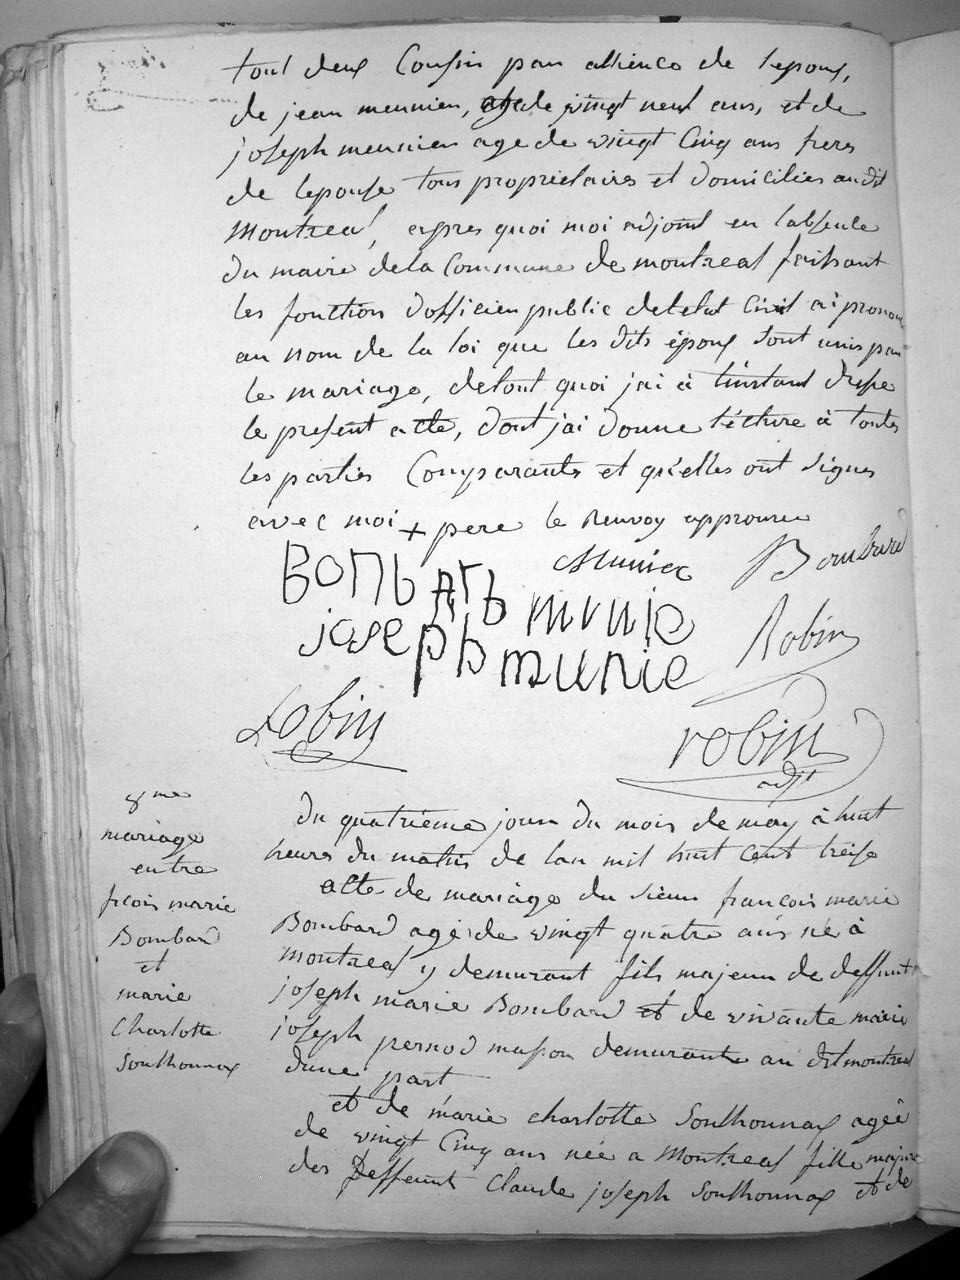 tout deux Cousin par allience de lepoux,
de jean meunier, age de vingt neuf ans, et de
joseph meunier age de vingt Cinq ans freres
de lepouse tous proprietaires et domicilies audit
montreal, apres quoi moi adjoint en labsence
du maire dela Commune de montreal faissant
les fonction dofficier public deletat Civil ai pronon
au nom de la loi que les dits époux sont unis par
le mariage, detout quoi jai à linstant
le present acte, dont jai donne lécture à toutes
les parties Comparantes et quelles ont signes
avec moi + pere le Renvoy approuve
Munier Bombard
BONbARb munie
joseph munie Robin
Robin robin
adjt
8me
mariage
entre
fcois marie
Bombard
et
marie
Charlotte
Southonnax
Du quatrième jour du mois de may à huit
heures du matin de lan mil huit cent treise
acte de mariage du sieur francois marie
Bombard agé de vingt quatre ans né à
montreal y demurant fils majeur de deffunt
joseph marie Bombard et de vivante marie
joseph pernod masson demurante au dit montreal
dune part
et de marie charlotte Southonnax agée
de vingt Cinq ans née a Montreal fille majeure
des Deffeunt Claude joseph Southonnax et de